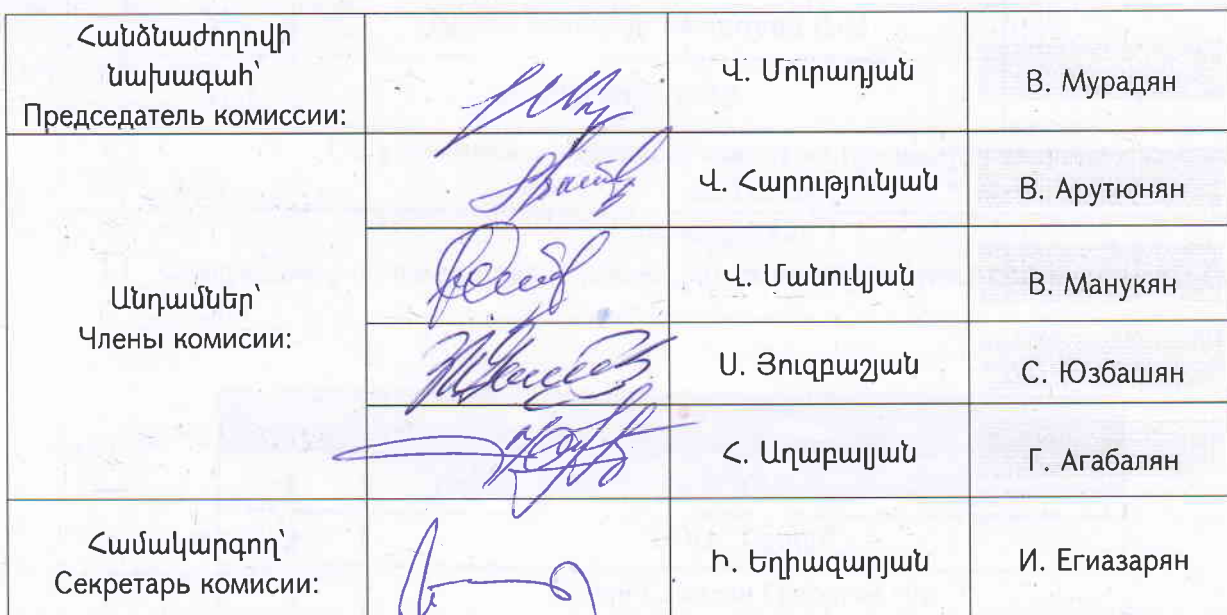 Հանձնաժողովի
նախագահ՝
Председатель комиссии:
Վ. Մուրադյան
В. Мурадян
Վ. Հարությունյան
В. Арутюнян
Անդամներ՝
Члены комисии:
Վ. Մանուկյան
В. Манукян
Ս. Յուզբաշյան
С. Юзбашян
Հ. Աղաբալյան
Г. Агабалян
Համակարգող՝
Секретарь комисии:
Ի. Եղիազարյան
И. Егиазарян